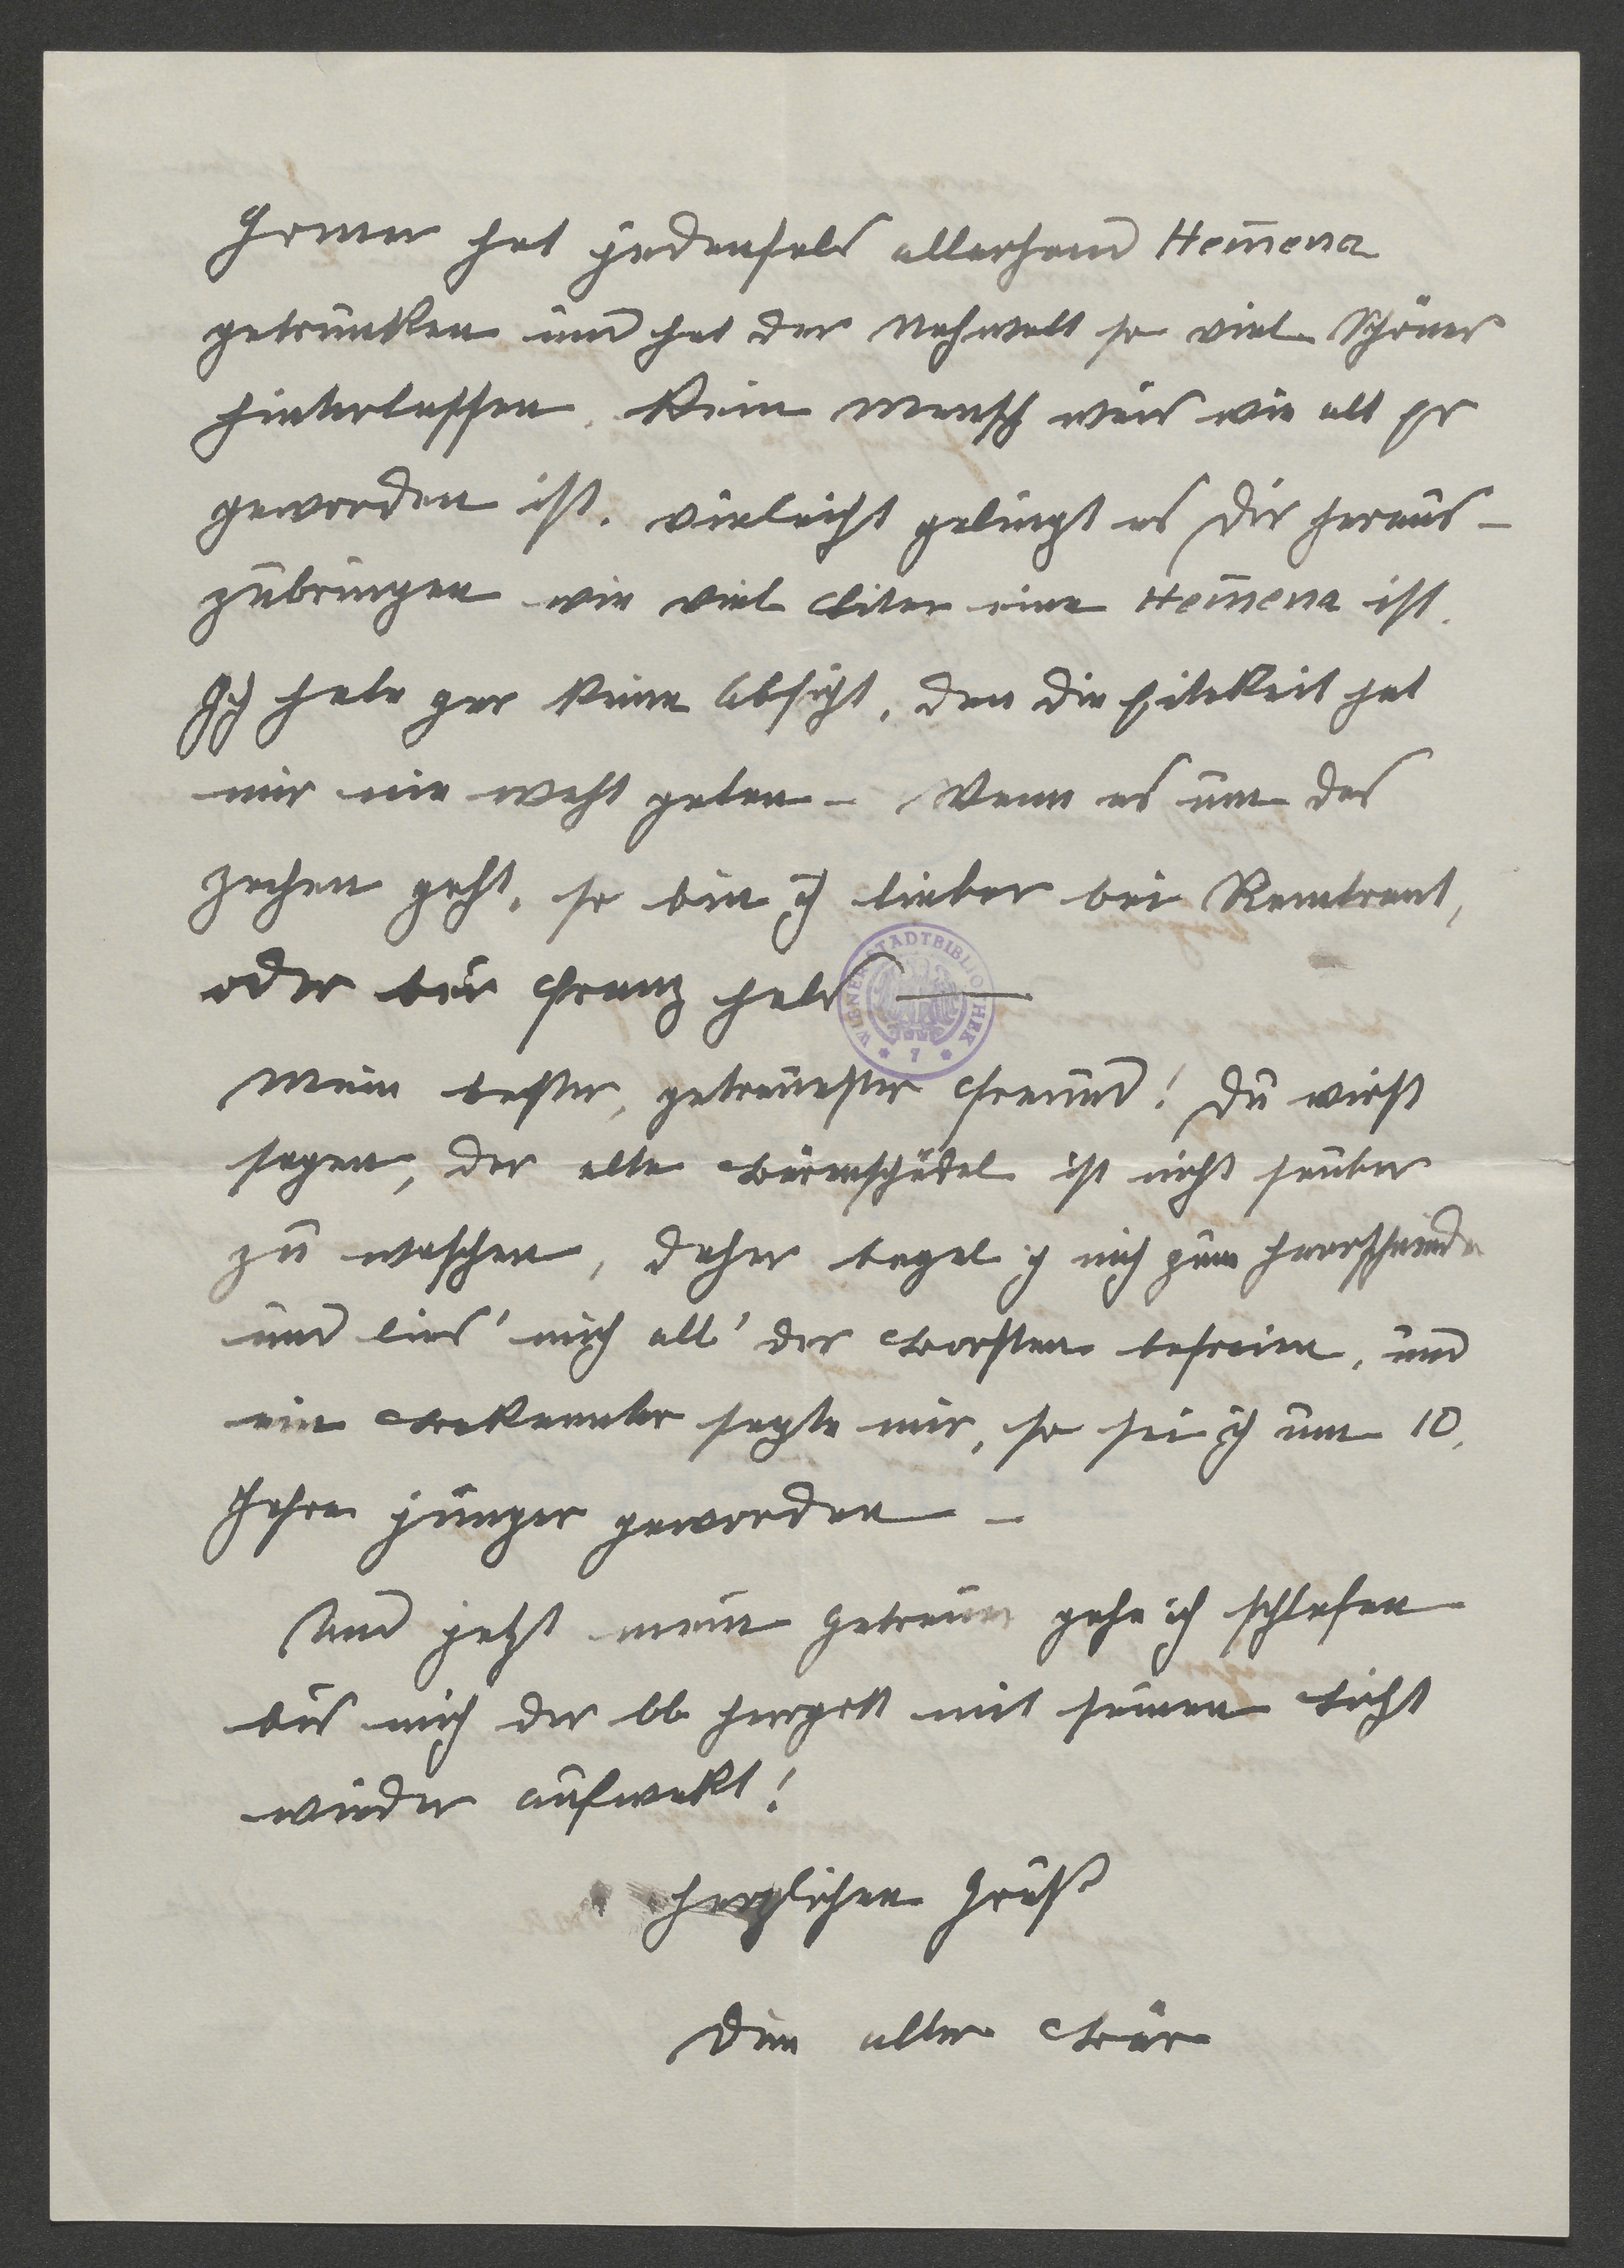 Homer hat jedenfals allerhand Hem̄ena
getrunken und hat der Nachwelt so viel Schönes
hinterlassen. Kein Mensch weis wie alt Er
geworden ist. Vieleicht gelingt es Dir heraus-
zubringen wie viel Liter eine Hem̄ena ist.
Ich habe gar keine Absicht, den die Eitelkeit hat
mir nie weht getan – Wenn es um das
Zechen geht, so bin ich lieber bei Rembrant,
oder bei Franz Hals —
Mein bester, getreuester Freund! Du wirst
sagen, der alte Bärenschädel ist nicht sauber
zu waschen, daher begab ich mich zum Haarschneider
und lies' mich all' der Borsten befreien, und
ein Bekannter sagte mir, so sei ich um 10.
Jahre jünger geworden –
Und jetzt mein Getreuer gehe ich schlafen
bis mich der lb Herrgott mit seinem Licht
wieder aufwekt!
Herzlichen Gruß
Dein alter Bär
WIENER STADTBIBLIOTHEK
* 7 *